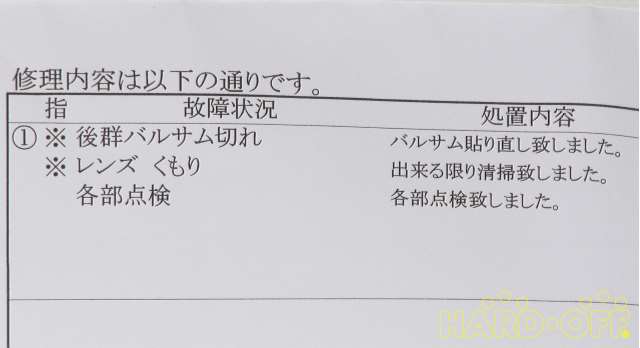 修理内容は以下の通りです。
指 故障状況 処置内容
① ※ 後群バルサム切れ バルサム貼り直し致しました。
※ レンズ くもり 出来る限り清掃致しました。
各部点検 各部点検致しました。
HARD・OFF